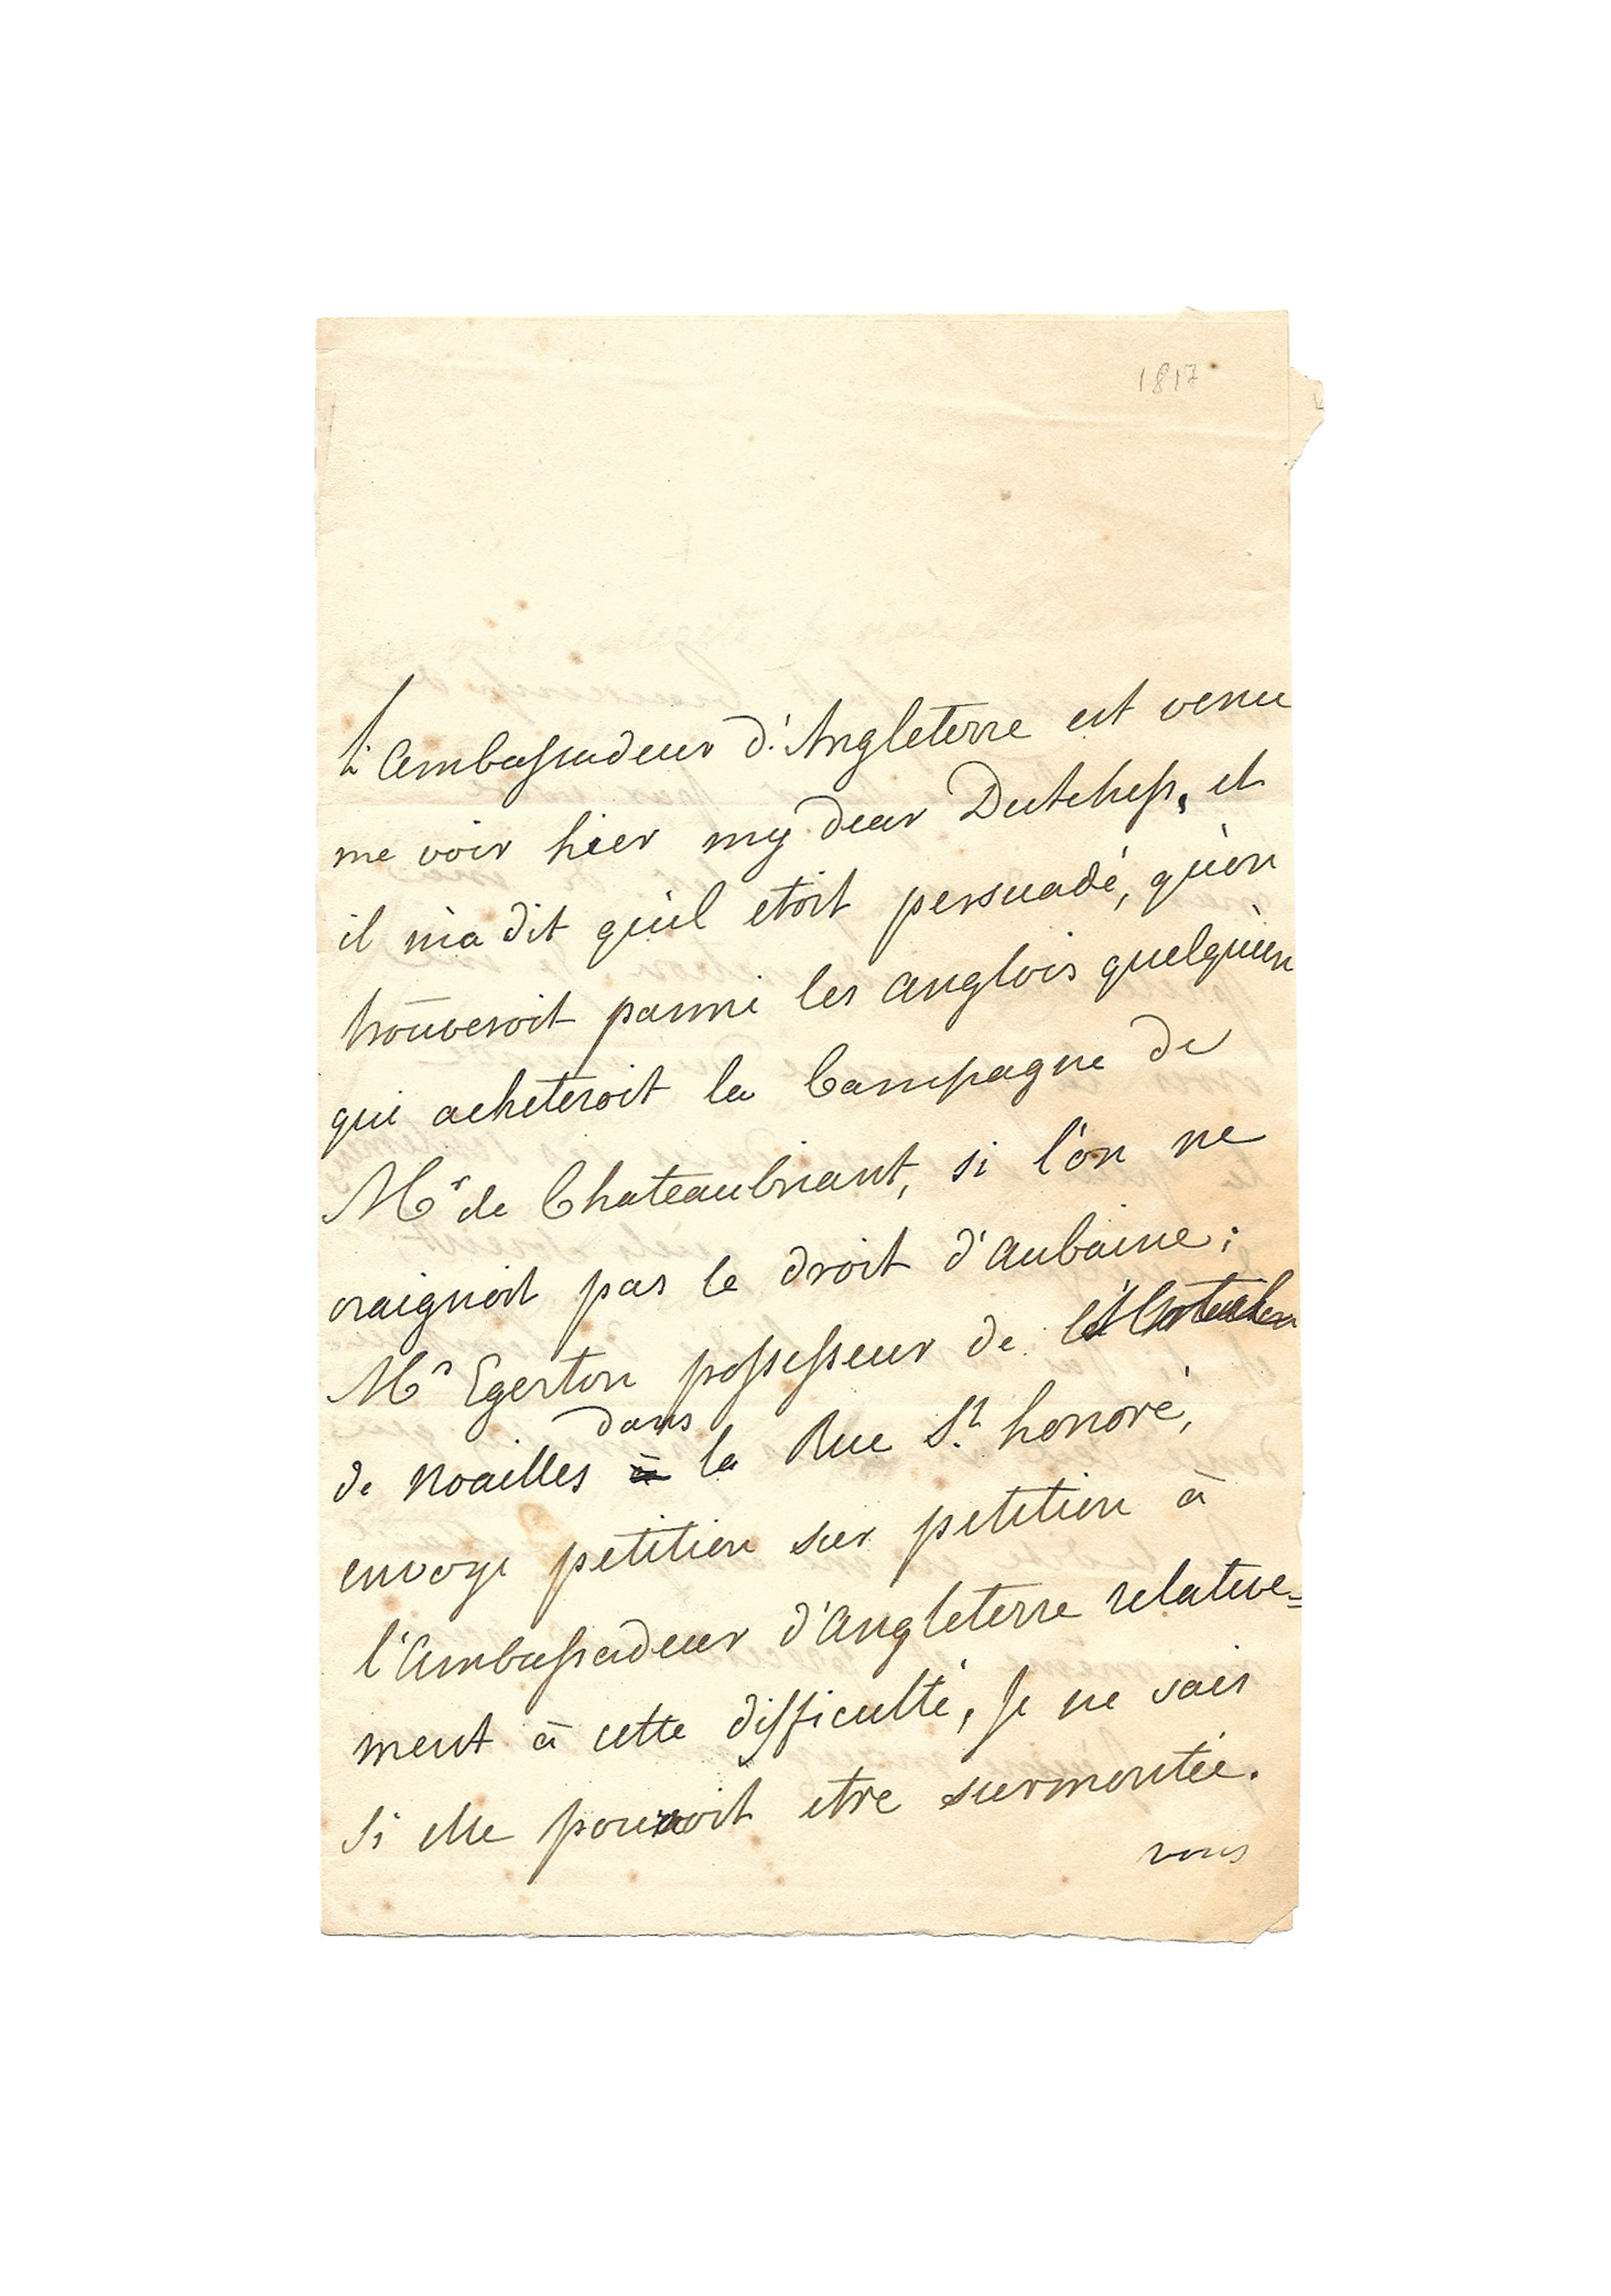 1817
L'ambassadeur d'Angleterre est venu
me voir hier my dear Dutchess, et
il m'a dit qu'il etoit persuadé, qu'on
trouveroit parmi les anglois quelqu'un
qui acheteroit la Campagne de
Mr de Chateaubriant, si l'on ne
craignoit pas le droit d'aubaine;
Mr Egerton possesseur de l'hotel
de Noailles dans la Rue St. honoré,
envoye petition sur petition à
l'Ambassadeur d'Angleterre relative=
ment à cette difficulté, Je ne sais
si elle pouroit etre surmontée.
vous